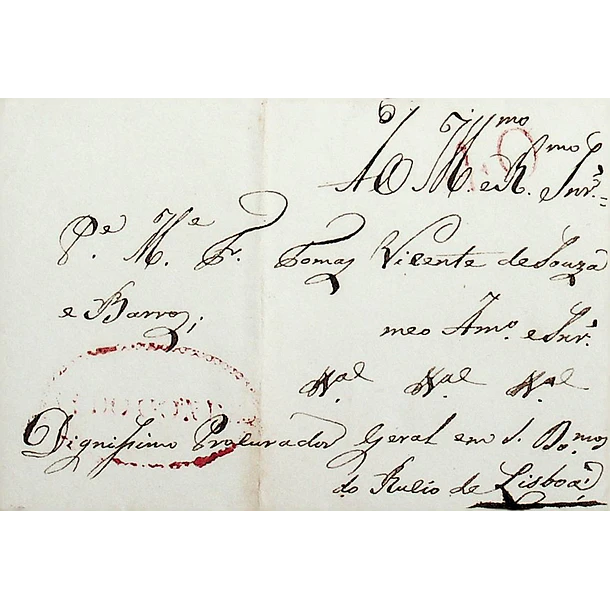 Ao M.mo e R.mo Snr.
P.e M.e Fr. Tomaz Vicente de Souza
e Barros;
meo Am.o e Snr.
N.al N.al N.al
Dignissimo Procurador Geral em S. Dom.os
do Rucio de Lisboa